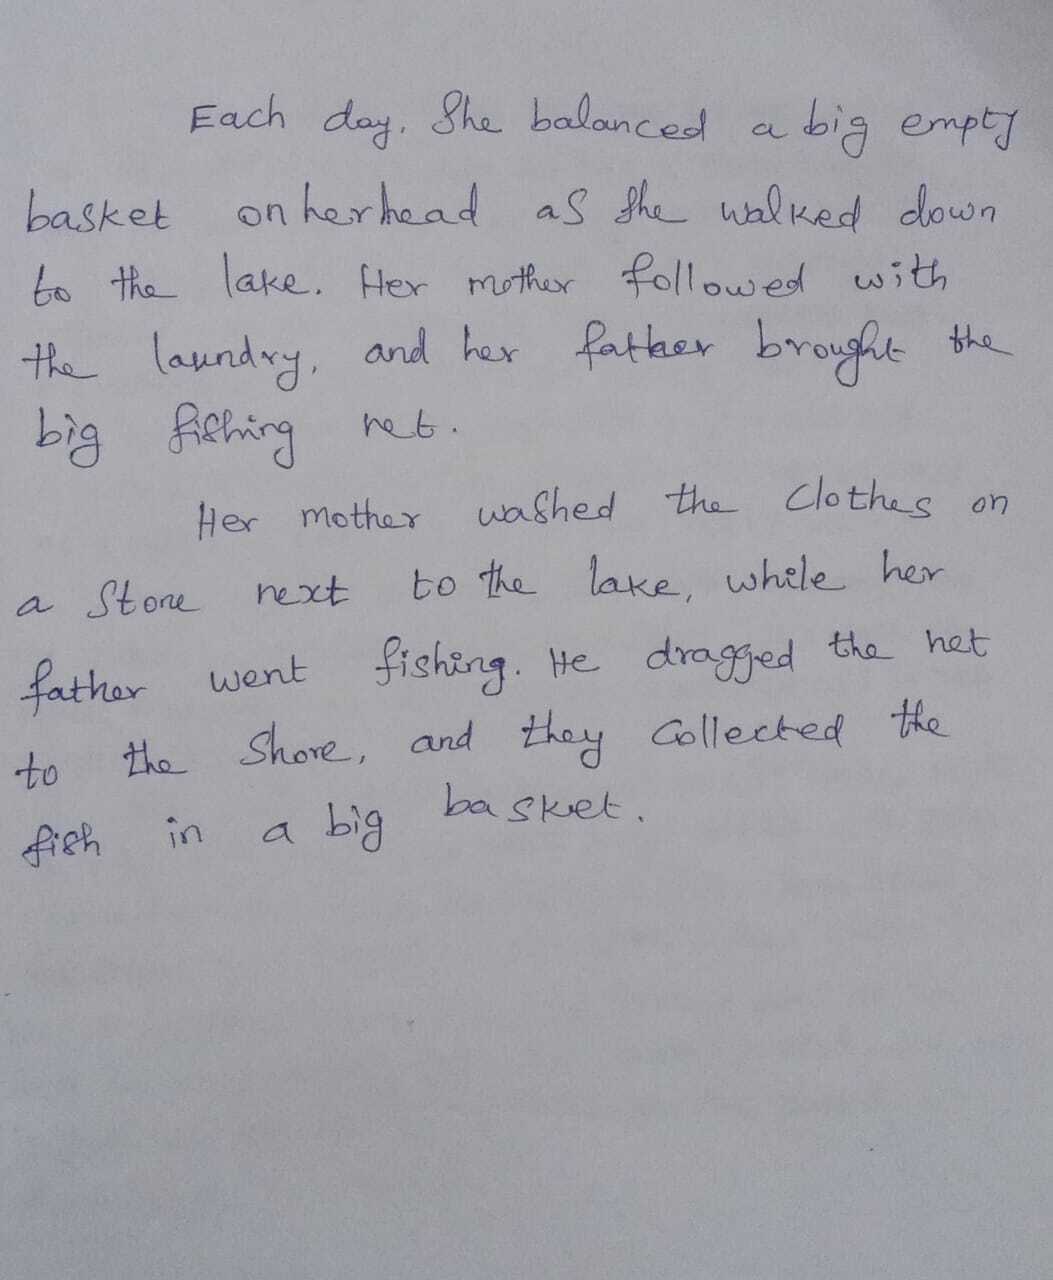 Each day. She balanced a big empty
basket on her head as she walked down
to the lake. Her mother followed with
the laundry, and her father brought the
big fishing net.
Her mother washed the clothes on
a stone next to the lake, while her
father went fishing. He dragged the net
to the shore, and they collected the
fish in a big basket.